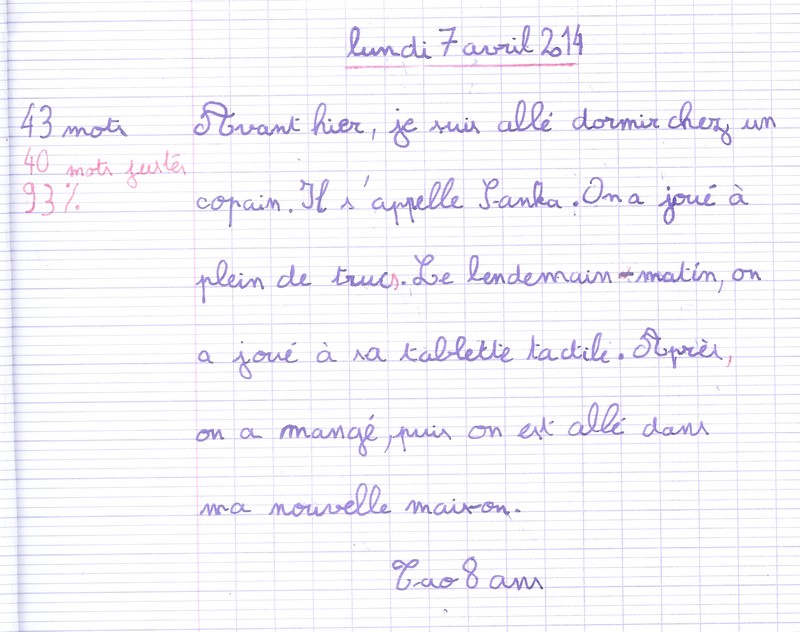 lundi 7 avril 2014
43 mots
40 mots justes
93%
Avant hier, je suis allé dormir chez un
copain. Il s'appelle Sanka. On a joué à
plein de trucs. Le lendemain-matin, on
a joué à sa tablette tactile. Après,
on a mangé, puis on est allé dans
ma nouvelle maison.
Tao 8 ans